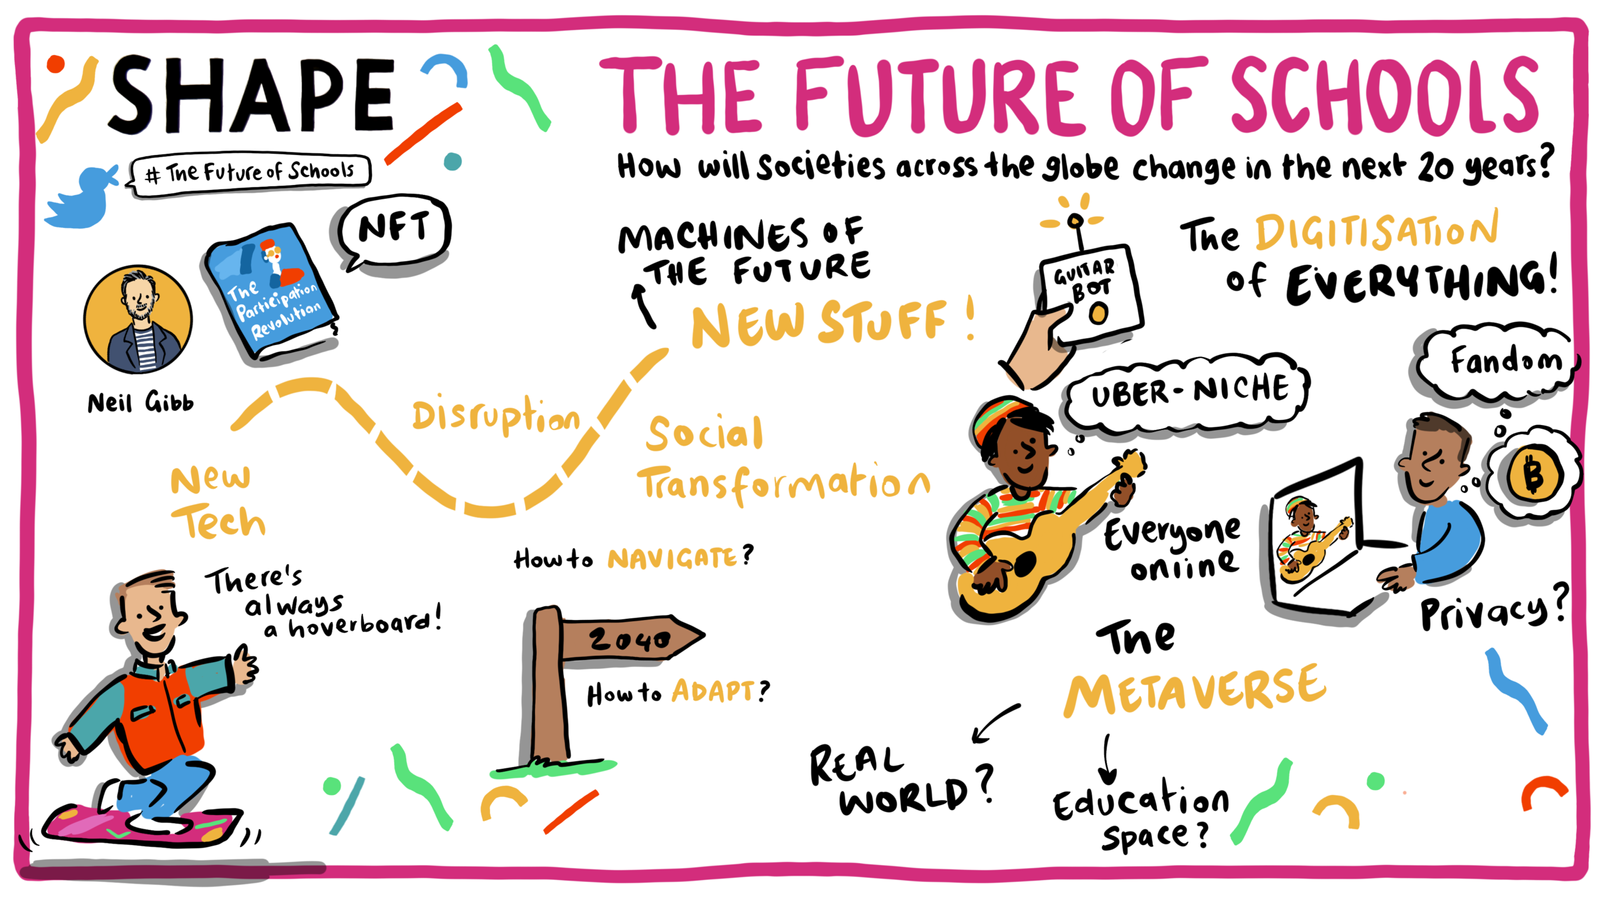 SHAPE
# The Future of Schools
THE FUTURE OF SCHOOLS
How will societies across the globe change in the next 20 years?
NFT
The
Participation
Revolution
Neil Gibb
MACHINES OF
THE FUTURE
NEW STUFF!
GUITAR
BOT
The DIGITISATION
of EVERYTHING!
Fandom
UBER-NICHE
₿
Disruption
Social
Transformation
New
Tech
Everyone
online
Privacy?
There's
always
a hoverboard!
How to NAVIGATE?
2040
How to ADAPT?
The
METAVERSE
REAL
WORLD?
Education
space?